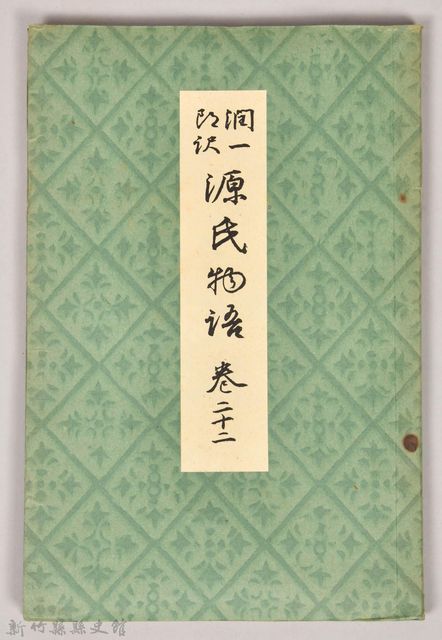 潤一
郎訳
源氏物语
卷二十二
新竹縣縣史館